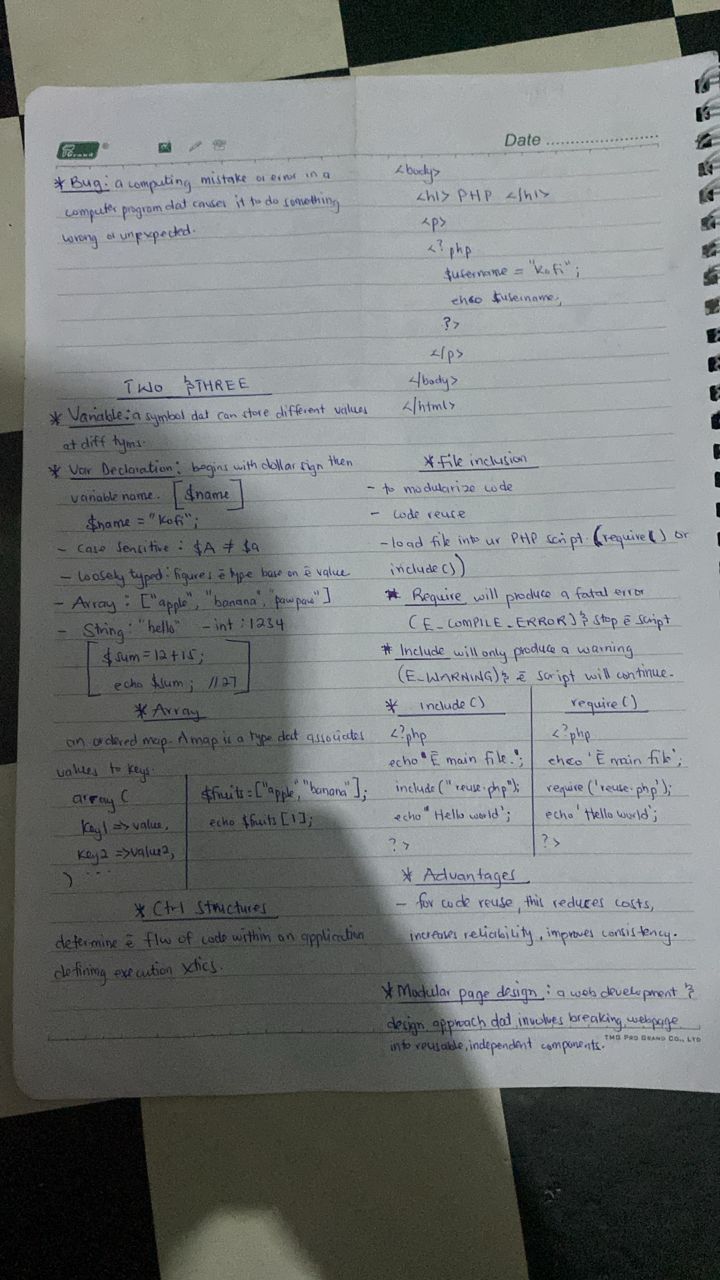 Date
* Bug: a computing mistake or error in a
computer program dat causes it to do something
wrong or unexpected.
TWO & THREE
* Variable: a symbol dat can store different values
at diff tyms.
* Var Declaration: begins with dollar sign then
variable name. [$name]
$name = "Kofi";
- Case sensitive: $A ≠ $a
- Loosely typed: figures ē type base on ē value
- Array: ["apple", "banana", "pawpaw"]
- String: "hello" - int: 1234
$sum = 12+15;
echo $sum; //27
* Array
an ordered map. A map is a type dat associates
values to keys.
array (
key1 => value,
key2 => value2,
) ...
$fruits = ["apple", "banana"];
echo $fruits [1];
* Ctrl Structures
determine ē flow of code within an application
defining execution xtics.
<body>
<h1> PHP </h1>
<p>
<? php
$username = "kofi";
ehco $username;
?>
</p>
</body>
</html>
* File inclusion
- to modularize code
- code reuse
- load file into ur PHP script. (require() or
include())
* Require will produce a fatal error
(E_COMPILE_ERROR) & stop ē script
* Include will only produce a warning
(E_WARNING) & ē script will continue.
* include()
<?php
echo "Ē main file.";
include("reuse.php");
echo "Hello world';
?>
require()
<?php
ehco 'Ē main file';
require('reuse.php');
echo 'Hello world';
?>
* Advantages
- for code reuse, this reduces costs,
increases reliability, improves consistency.
* Modular page design: a web development &
design approach dat involves breaking webpage
into reusable, independent components.
TMG PRO BRAND CO., LTD